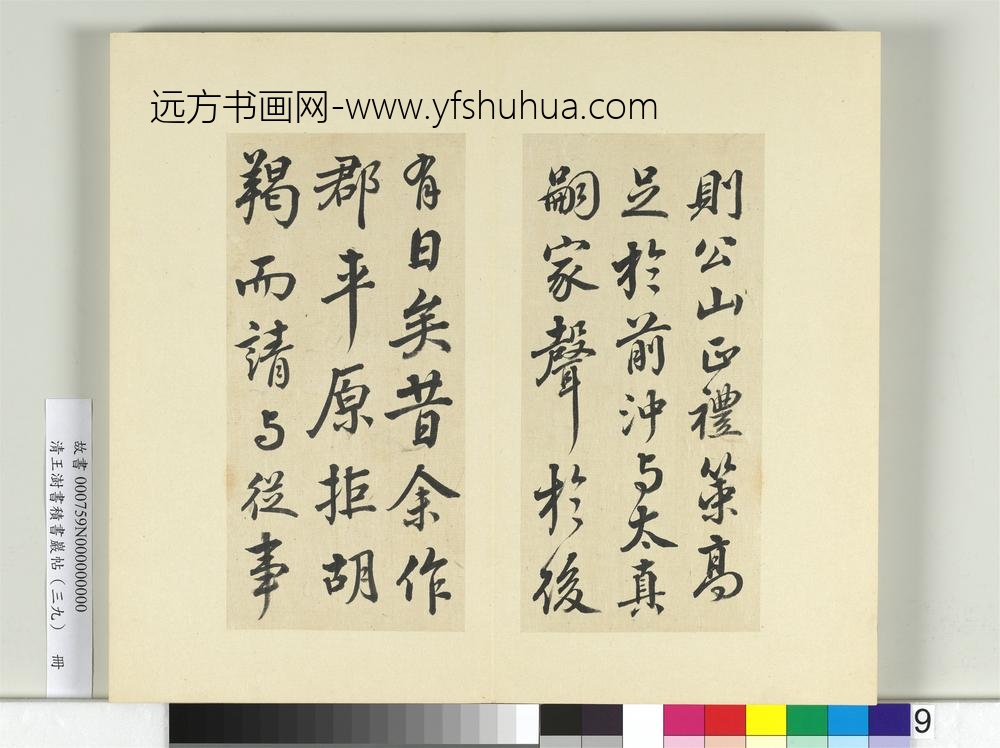 远方书画网-www.yfshuhua.com
則公山正禮策高
足於前沖与太真
嗣家聲於後
有日矣昔余作
郡平原拒胡
羯而請与從事
故書 000759N000000000
清王澍書積書巖帖（三九） 冊
9